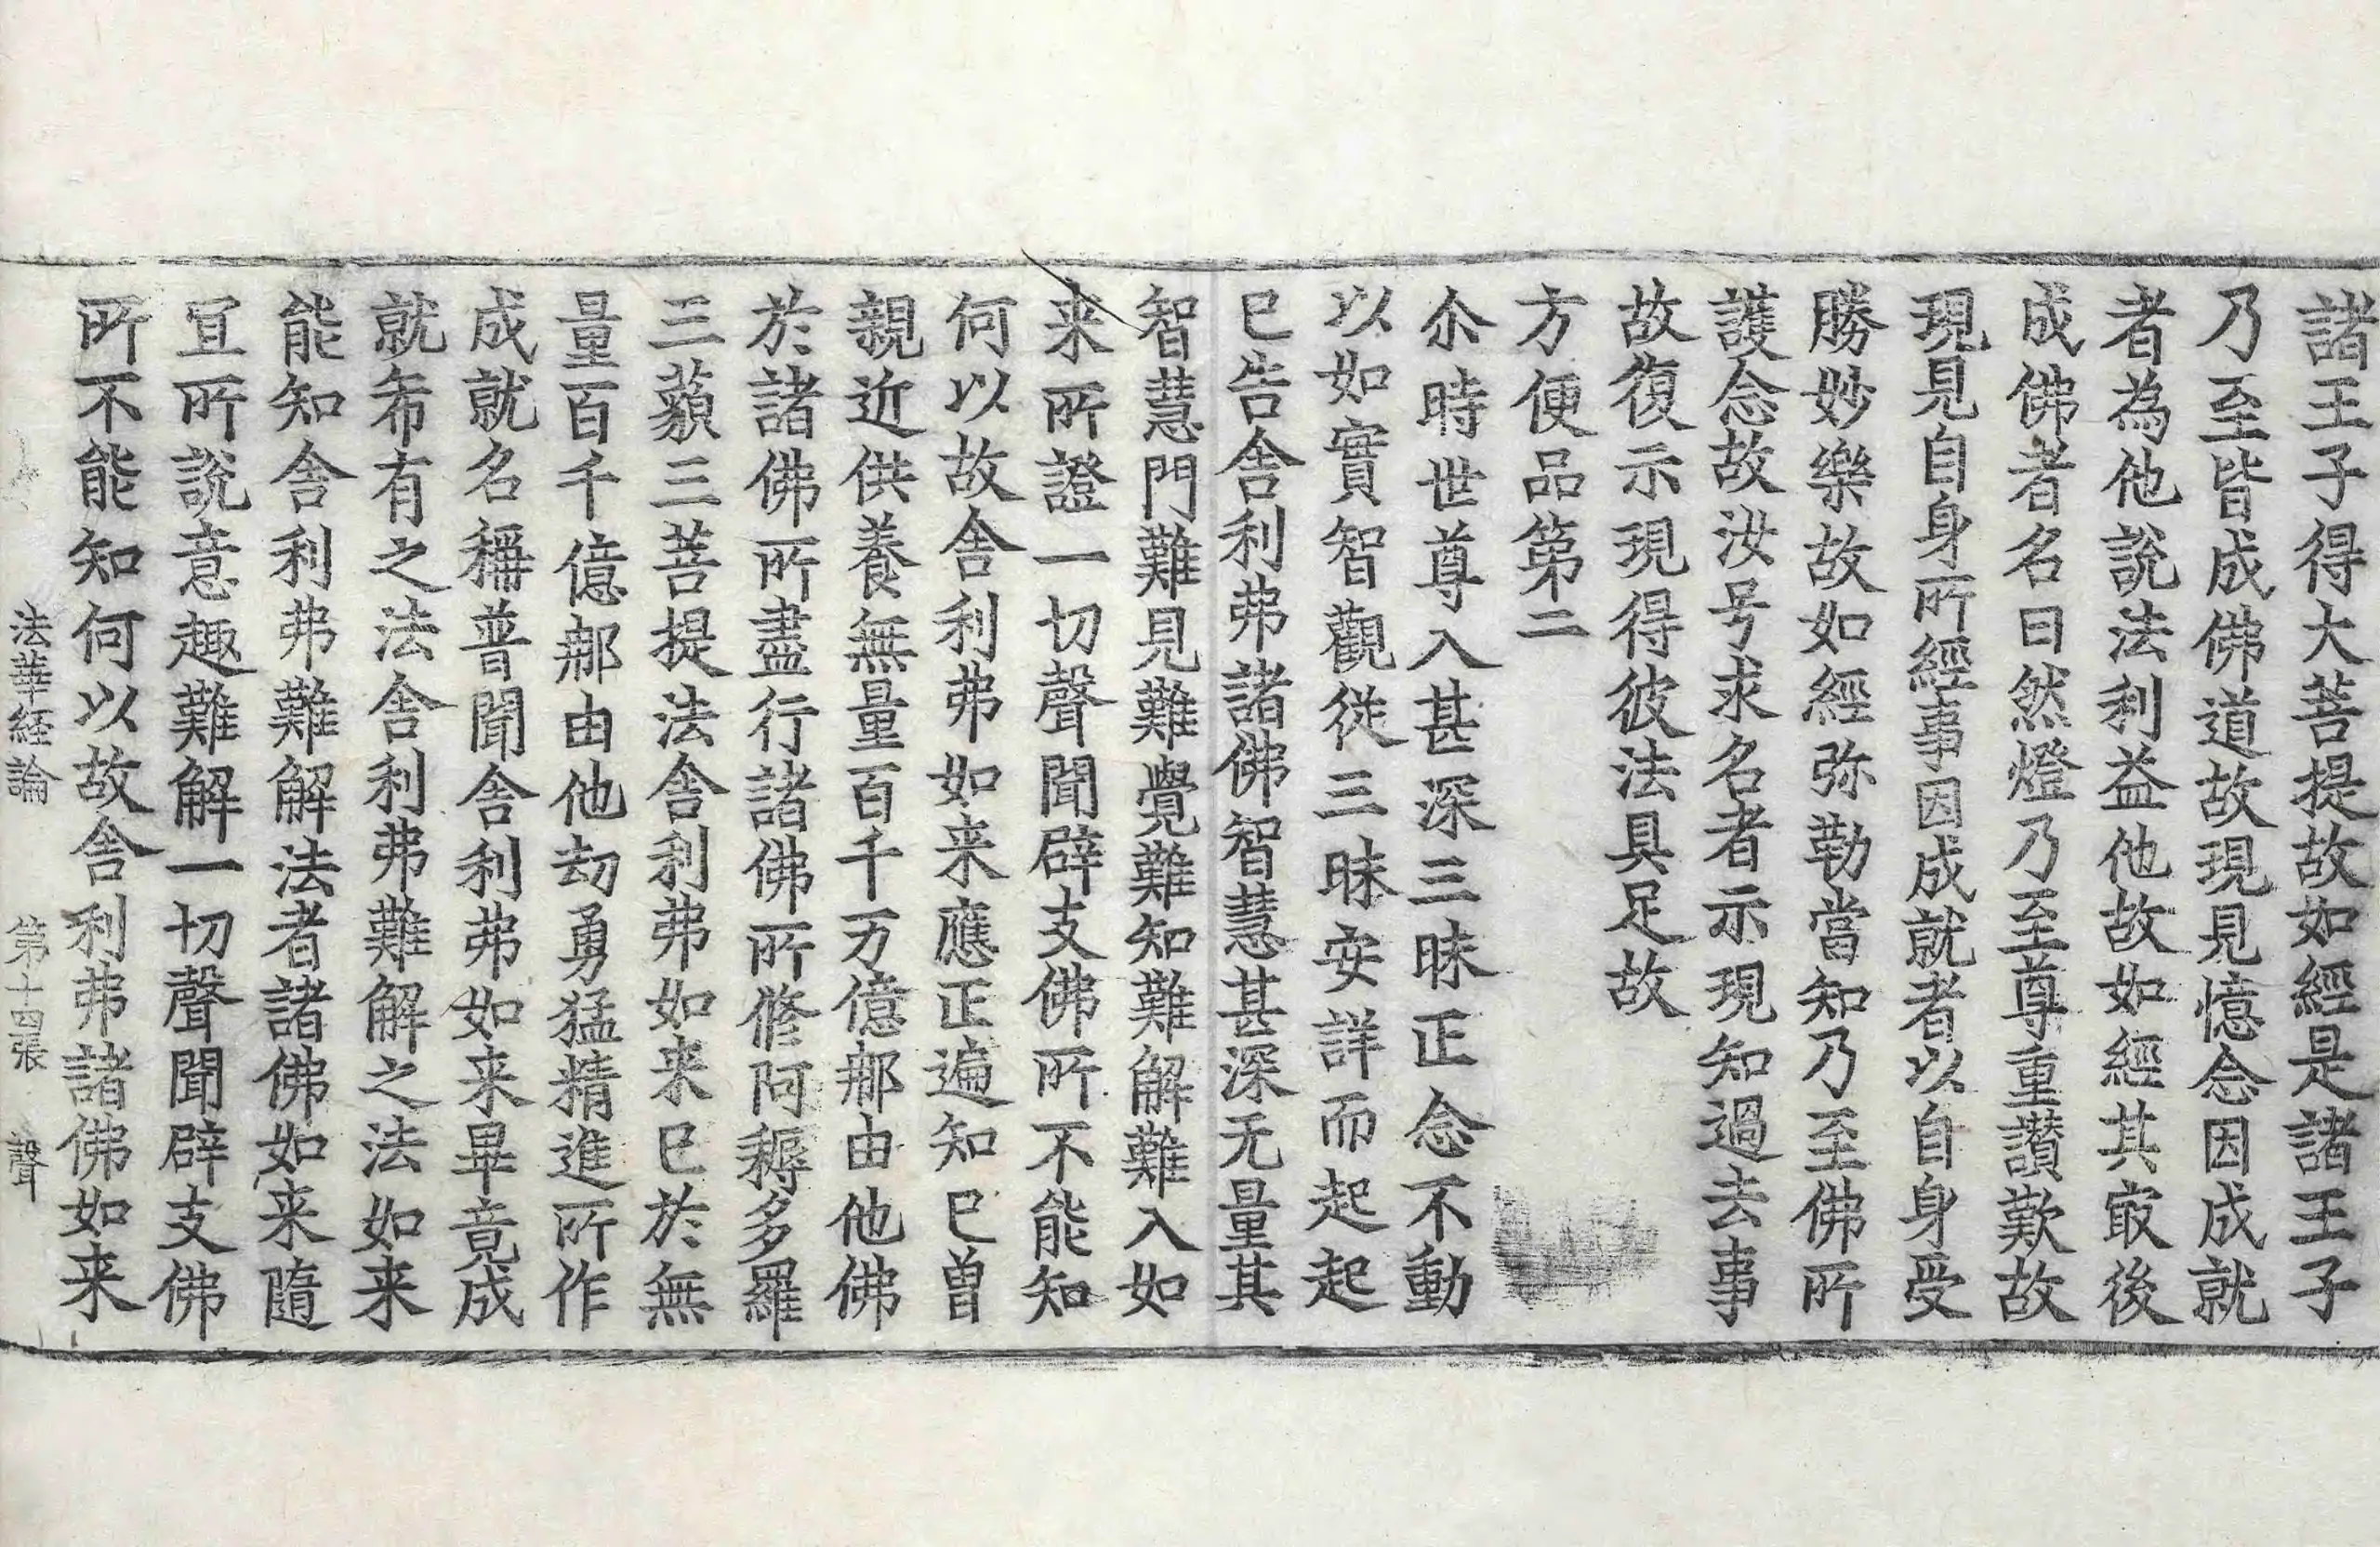 諸王子得大菩提故如經是諸王子
乃至皆成佛道故現見憶念因成就
者為他說法利益他故如經其㝡後
成佛者名曰然燈乃至尊重讚歎故
現見自身所經事因成就者以自身受
勝妙樂故如經弥勒當知乃至佛所
護念故汝号求名者示現知過去事
故復示現得彼法具足故
方便品第二
尒時世尊入甚深三昧正念不動
以如實智觀從三昧安詳而起起
已告舍利弗諸佛智慧甚深无量其
智慧門難見難覺難知難解難入如
来所證一切聲聞辟支佛所不能知
何以故舍利弗如来應正遍知已曾
親近供養無量百千万億那由他佛
於諸佛所盡行諸佛所修阿耨多羅
三藐三菩提法舍利弗如来已於無
量百千億那由他劫勇猛精進所作
成就名稱普聞舍利弗如来畢竟成
就希有之法舍利弗難解之法如来
能知舍利弗難解法者諸佛如来隨
冝所說意趣難解一切聲聞辟支佛
所不能知何以故舍利弗諸佛如来
法華経論 第十四張 聲